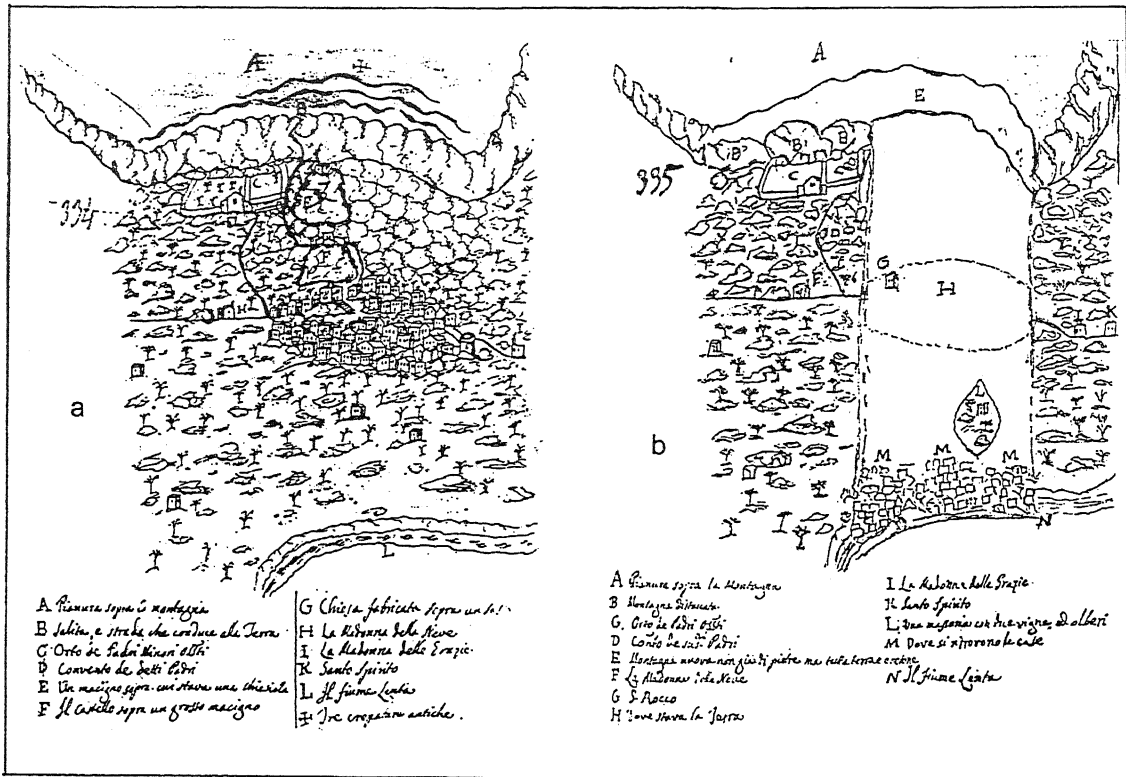 A
334
H
L
a
A Pianura sopra la montagna
B Salita, e strada che conduce alla Terra
C Orto de Padri Minori Osſti
D Convento de detti Padri
E Un macigno sopra cui stava una chiesiola
F Il Castello sopra un grosso macigno
G Chiesa fabricata sopra un
H La Madonna della Neve
I La Madonna delle Grazie
K Santo Spirito
L Il fiume Lenta
Tre crepature antiche.
A
E
B
B
B
C
335
G
H
K
L
M
M
M
N
b
A Pianura sopra la Montagna
B Montagna distaccata
G. Orto de Padri
D de Padri
E Montagna nuova non più di pietre ma tufa terra e
F La Madonna della Neve
G S. Rocco
H Dove stava la Terra
I La Madonna delle Grazie.
K Santo Spirito
L Una con due vigne, ed alberi
M Dove si trovono le case
N Il fiume Lenta